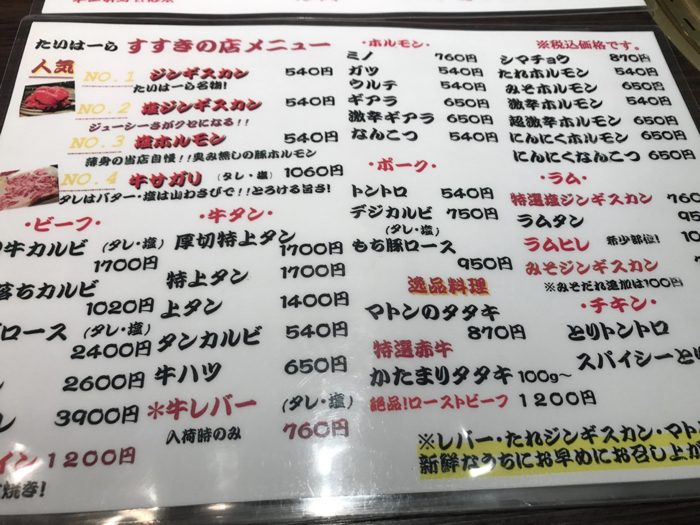 たいはーら すすきの店メニュー
人気
NO.1 ジンギスカン 540円
たいはーら名物!
NO.2 塩ジンギスカン 540円
ジューシーさがクセになる!!
NO.3 塩ホルモン 540円
薄身の当店自慢!!臭み無しの豚ホルモン
NO.4 牛サガリ (タレ・塩) 1060円
タレはバター・塩は山わさびで!!とろける旨さ!
・ビーフ・
牛カルビ (タレ・塩)
1700円
落ちカルビ
1020円
ロース (タレ・塩)
2400円
2600円
3900円
イン 1200円
焼き!
・牛タン・
厚切特上タン
1700円
特上タン 1700円
上タン 1400円
タンカルビ 540円
牛ハツ 650円
*牛レバー (タレ・塩)
入荷時のみ 760円
・ホルモン・
ミノ 760円
ガツ 540円
ウルテ 540円
ギアラ 650円
激辛ギアラ 650円
なんこつ 540円
・ポーク・
トントロ 540円
デジカルビ 750円
(タレ・塩)
もち豚ロース
950円
逸品料理
マトンのタタキ
870円
特選赤牛
かたまりタタキ 100g~
絶品!ローストビーフ 1200円
※税込価格です。
シマチョウ 870円
たれホルモン 540円
みそホルモン 650円
激辛ホルモン 650円
超激辛ホルモン 650円
にんにくホルモン 650円
にんにくなんこつ 650円
・ラム・
特選塩ジンギスカン 760
ラムタン 95
ラムヒレ 希少部位!
みそジンギスカン
※みそだれ追加は100円
・チキン・
とりトントロ
スパイシーとり
※レバー・たれジンギスカン・マト
新鮮なうちにお早めにお召し上が